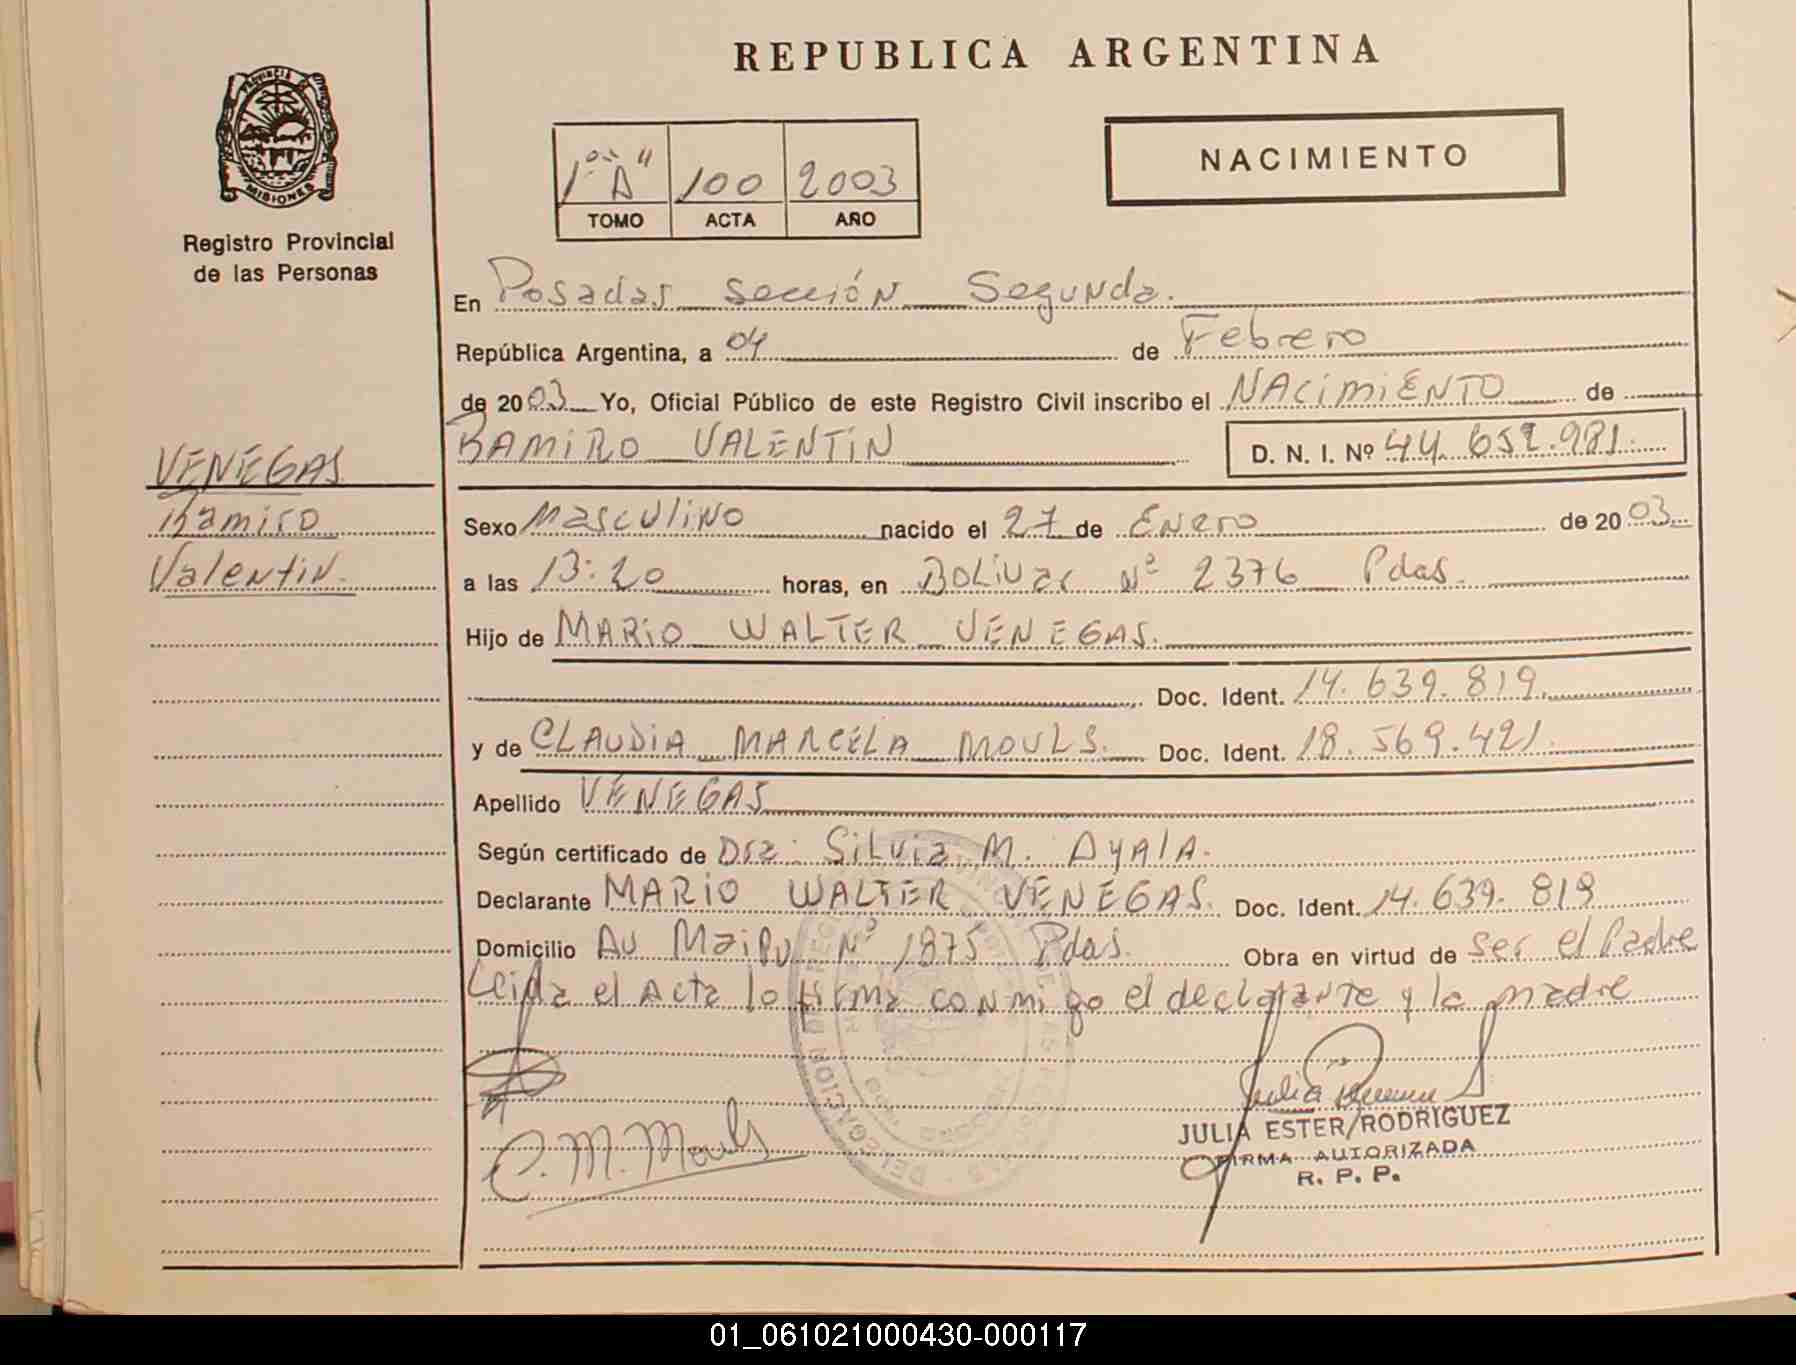 REPUBLICA ARGENTINA
PROVINCIA DE MISIONES
Registro Provincial
de las Personas
1º "A" 100 2003
TOMO ACTA AÑO
NACIMIENTO
En Posadas sección Segunda.
República Argentina, a 04 de Febrero
de 2003 Yo, Oficial Público de este Registro Civil inscribo el NACIMIENTO de
RAMIRO VALENTIN D. N. I. Nº 44.652.981.
VENEGAS
Ramiro
Valentin.
Sexo Masculino nacido el 27 de Enero de 2003
a las 13:20 horas, en Bolivar Nº 2376 Pdas.
Hijo de MARIO WALTER VENEGAS.
Doc. Ident. 14.639.819.
y de CLAUDIA MARCELA MOULS. Doc. Ident. 18.569.421.
Apellido VENEGAS
Según certificado de Dra. Silvia M. AYALA.
Declarante MARIO WALTER VENEGAS. Doc. Ident. 14.639.819
Domicilio Av Maipu Nº 1875 Pdas. Obra en virtud de ser el Padre
Leida el Acta lo firma conmigo el declarante y la madre
C. M. Mouls
JULIA ESTER RODRIGUEZ
FIRMA AUTORIZADA
R. P. P.
01_061021000430-000117